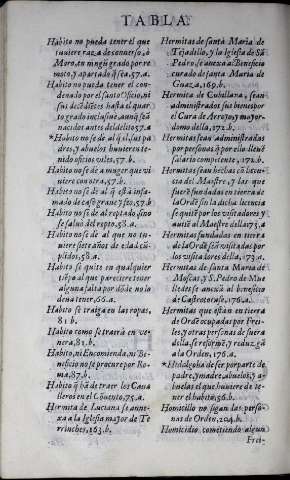 TABLA.
Habito no pueda tener el que
tuuiere raza de conuerso, ò
Moro, en ningũ grado por re
moto, y apartado q̃ sea, 57.a.
Habito no pueda tener el con-
denado por el santo Oficio, ni
sus decẽdiẽtes hasta el quar
to grado inclusiue, aunq̃ seã
nacidos antes del delito 57.a
*Habito no se dè al q̃ el, sus pa
dres, y abuelos huuieren te-
nido oficios viles, 57.b.
Habito no se dè a muger que vi
uiere con otra, 57.b.
Habito no se dè al q̃ està infa-
mado de caso graue 57.b.
Habito no se dè al reptado, sino
se saluò del repto, 58.a.
Habito no se dè al que no tu-
uiere siete años de edad cũ-
plidos, 58.a.
Habito se quite en qualquier
tiẽpo al que pareciere tener
alguna falta por dõde no lo
deua tener, 66.a.
Habito se traiga en las ropas,
81.b.
Habito como se traerà en ve-
nera, 81.b.
Habito, ni Encomienda, ni Be-
neficio no se procure por Ro-
ma, 87.b.
Habito q̃ hã de traer los Caua
lleros en el Cõuento, 75.a.
Hermita de Luciana se anne-
xa a la Iglesia mayor de Te
rrinches, 163.b.
Hermitas de santa Maria de
Tejadillo, y la Iglesia de Sã
Pedro, se anexa al Beneficio
curado de santa Maria de
Guaza, 169.b.
Hermita de Cubillana, sean
administrados sus bienes por
el Cura de
domo della, 172.b.
Hermitas sean administradas
por personas q̃ por ello lleuẽ
salario competente, 172.b.
Hermitas sean hechas cõ licen-
cia del Maestre, y las que
fuerẽ fundadas en tierra de
la Ordẽ sin la dicha licencia
se quitẽ por los visitadores y
autiẽ al Maestre della 175.a
Hermitas fundadas en tierra
de la Ordẽ seã visitadas por
los visitadores della, 175.a.
Hermitas de santa Maria de
Moscas, y S. Pedro de Mue
lledes se anexã al beneficio
de Castrotorafe, 176.a.
Hermitas que están en tierra
de Ordẽ ocupadas por Frei-
les, y otras personas de fuera
della, se reformẽ, y reduzgã
a la Orden, 176.a.
*Hidalguia de ser por parte de
padre, y madre, abuelos, y a-
buelas el que huuiere de te-
ner el habito, 56.b.
Homicillo no sigan las perso-
nas de Orden, 204.b.
Homicidio cometiendo algun
Frei-